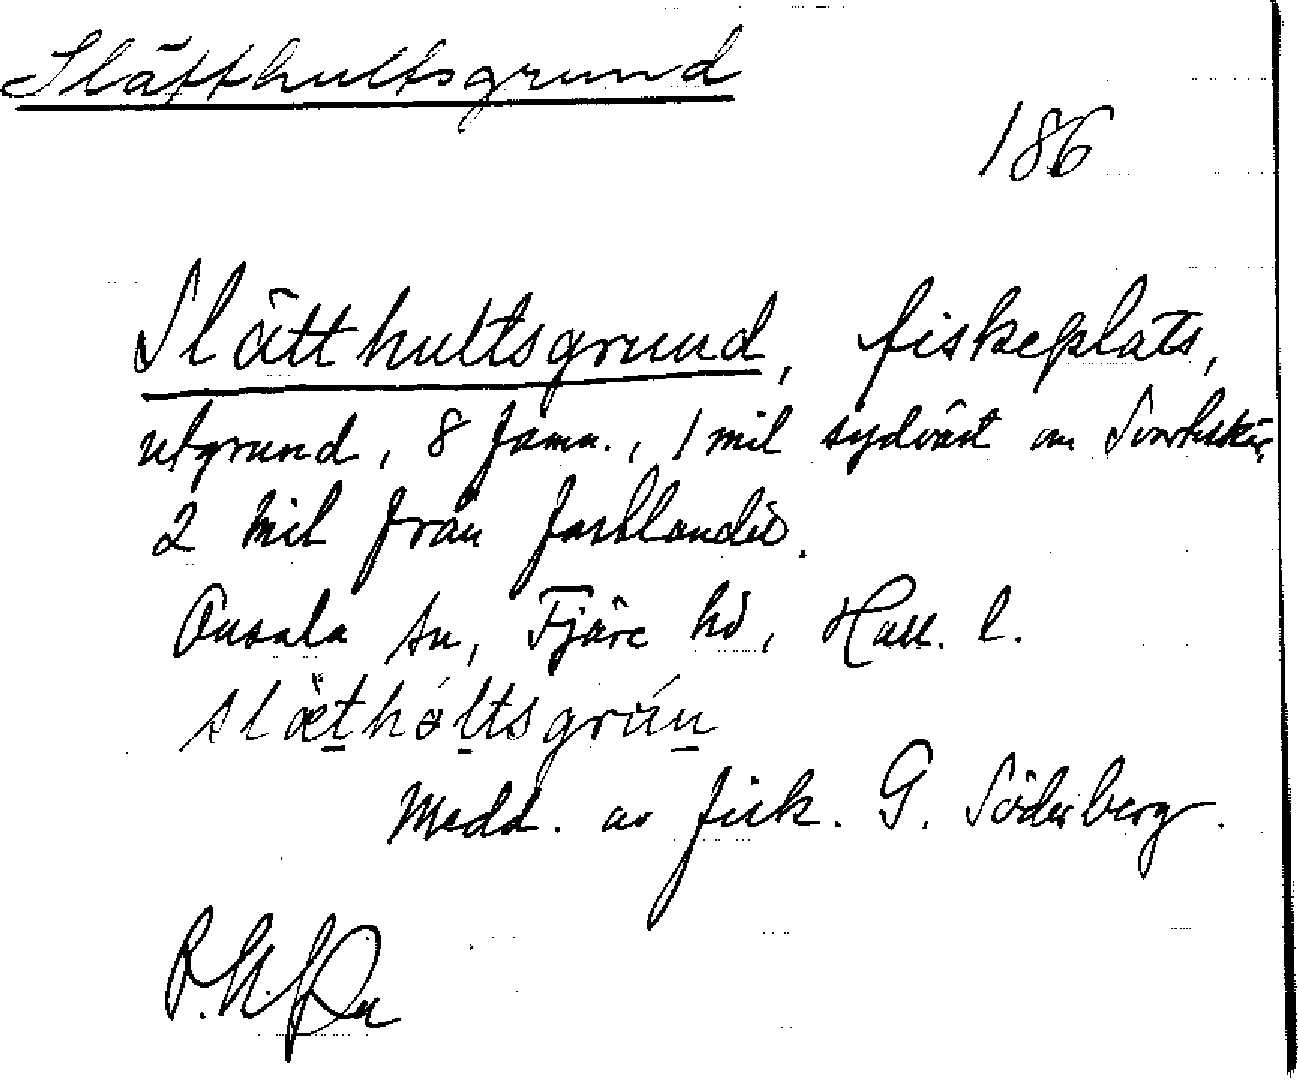 Slätthultsgrund
186
Slätthultsgrund, fiskeplats,
utgrund, 8 famn., 1 mil sydväst om Svartskär,
2 mil från fastlandet.
Onsala sn, Fjäre hd, Hall. l.
slæ̀thóltsgrún
Medd. av fisk. G. Söderberg.